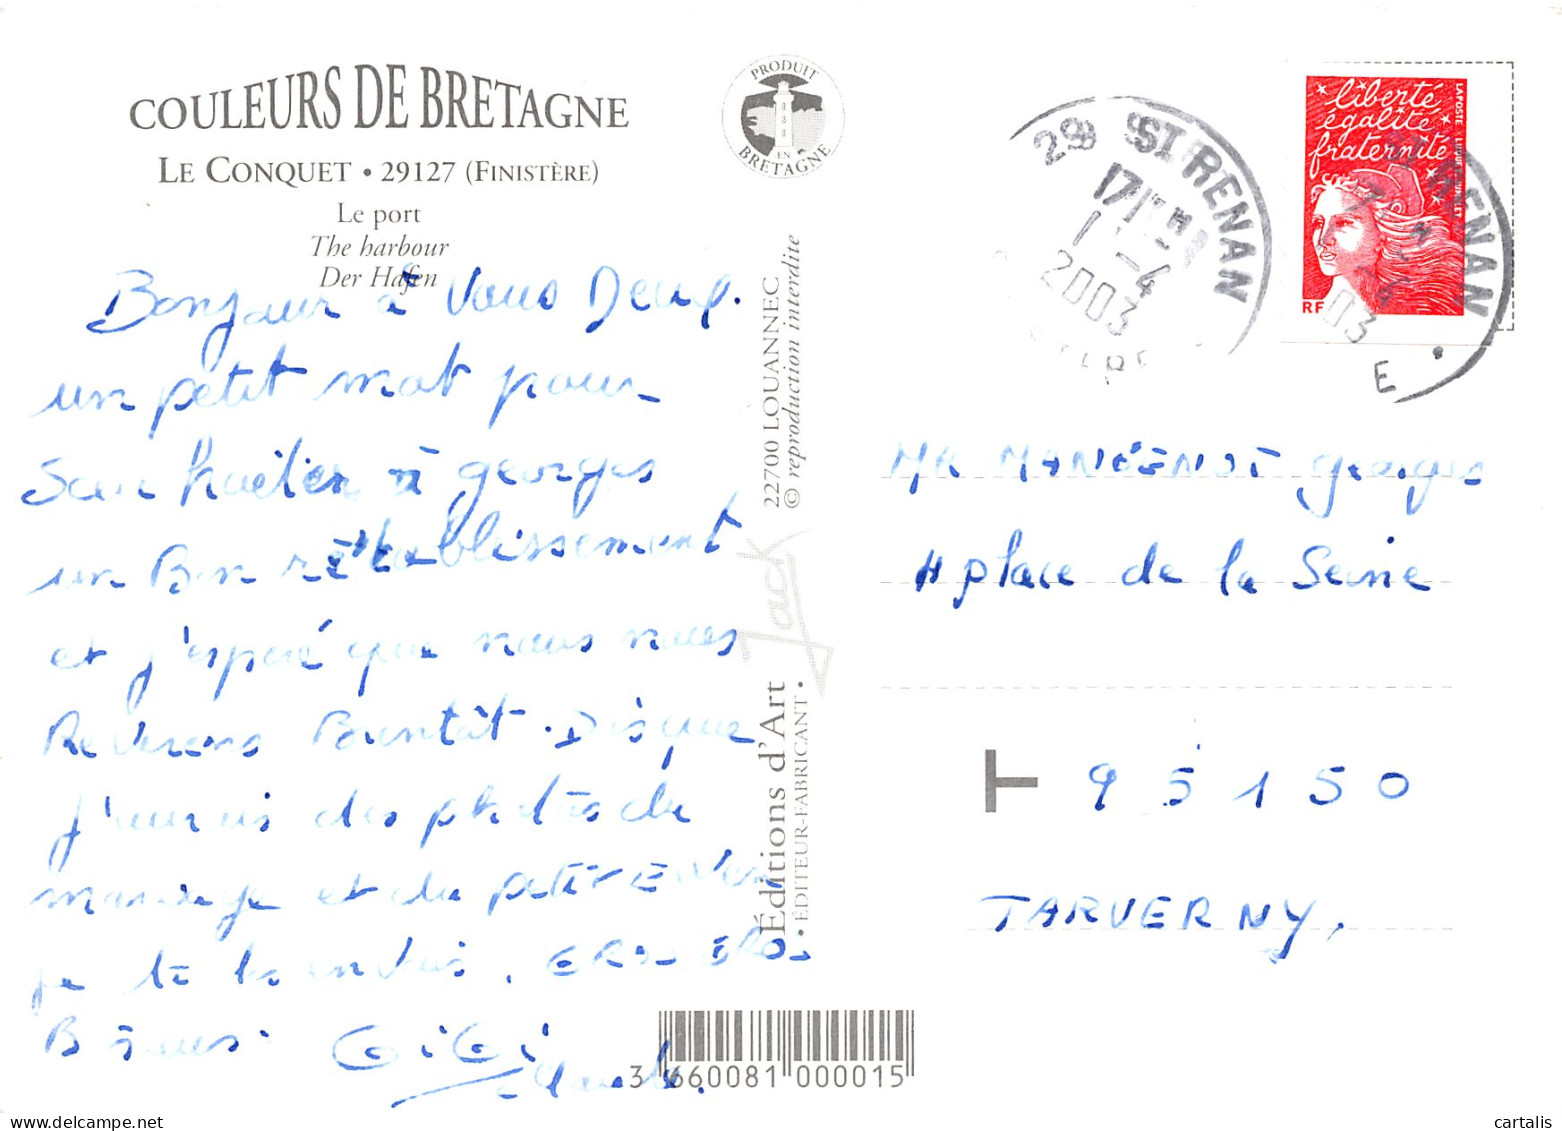 COULEURS DE BRETAGNE
LE CONQUET • 29127 (FINISTÈRE)
Le port
The harbour
Der Hafen
PRODUIT
EN
BRETAGNE
Bonjour à Vous Deux.
un petit mot pour
Souhaiter à georges
un Bon rétablissement
et j'esperé que nous nous
Reverons Bientôt. Dis que
j'aurais des photos du
mariage et du petit
je te les envois. GROS GROS
Bisous. GiGi
Claude.
22700 LOUANNEC
© reproduction interdite
Jack
Éditions d'Art
• ÉDITEUR-FABRICANT •
3 660081 000015
29 ST RENAN
17H
1-4
2003
liberté
égalité
fraternité
LA POSTE
RF
ST RENAN
03
E
MR MANGENOT georges
4 place de la Seine
T 95150
TARVERNY,
cartalis